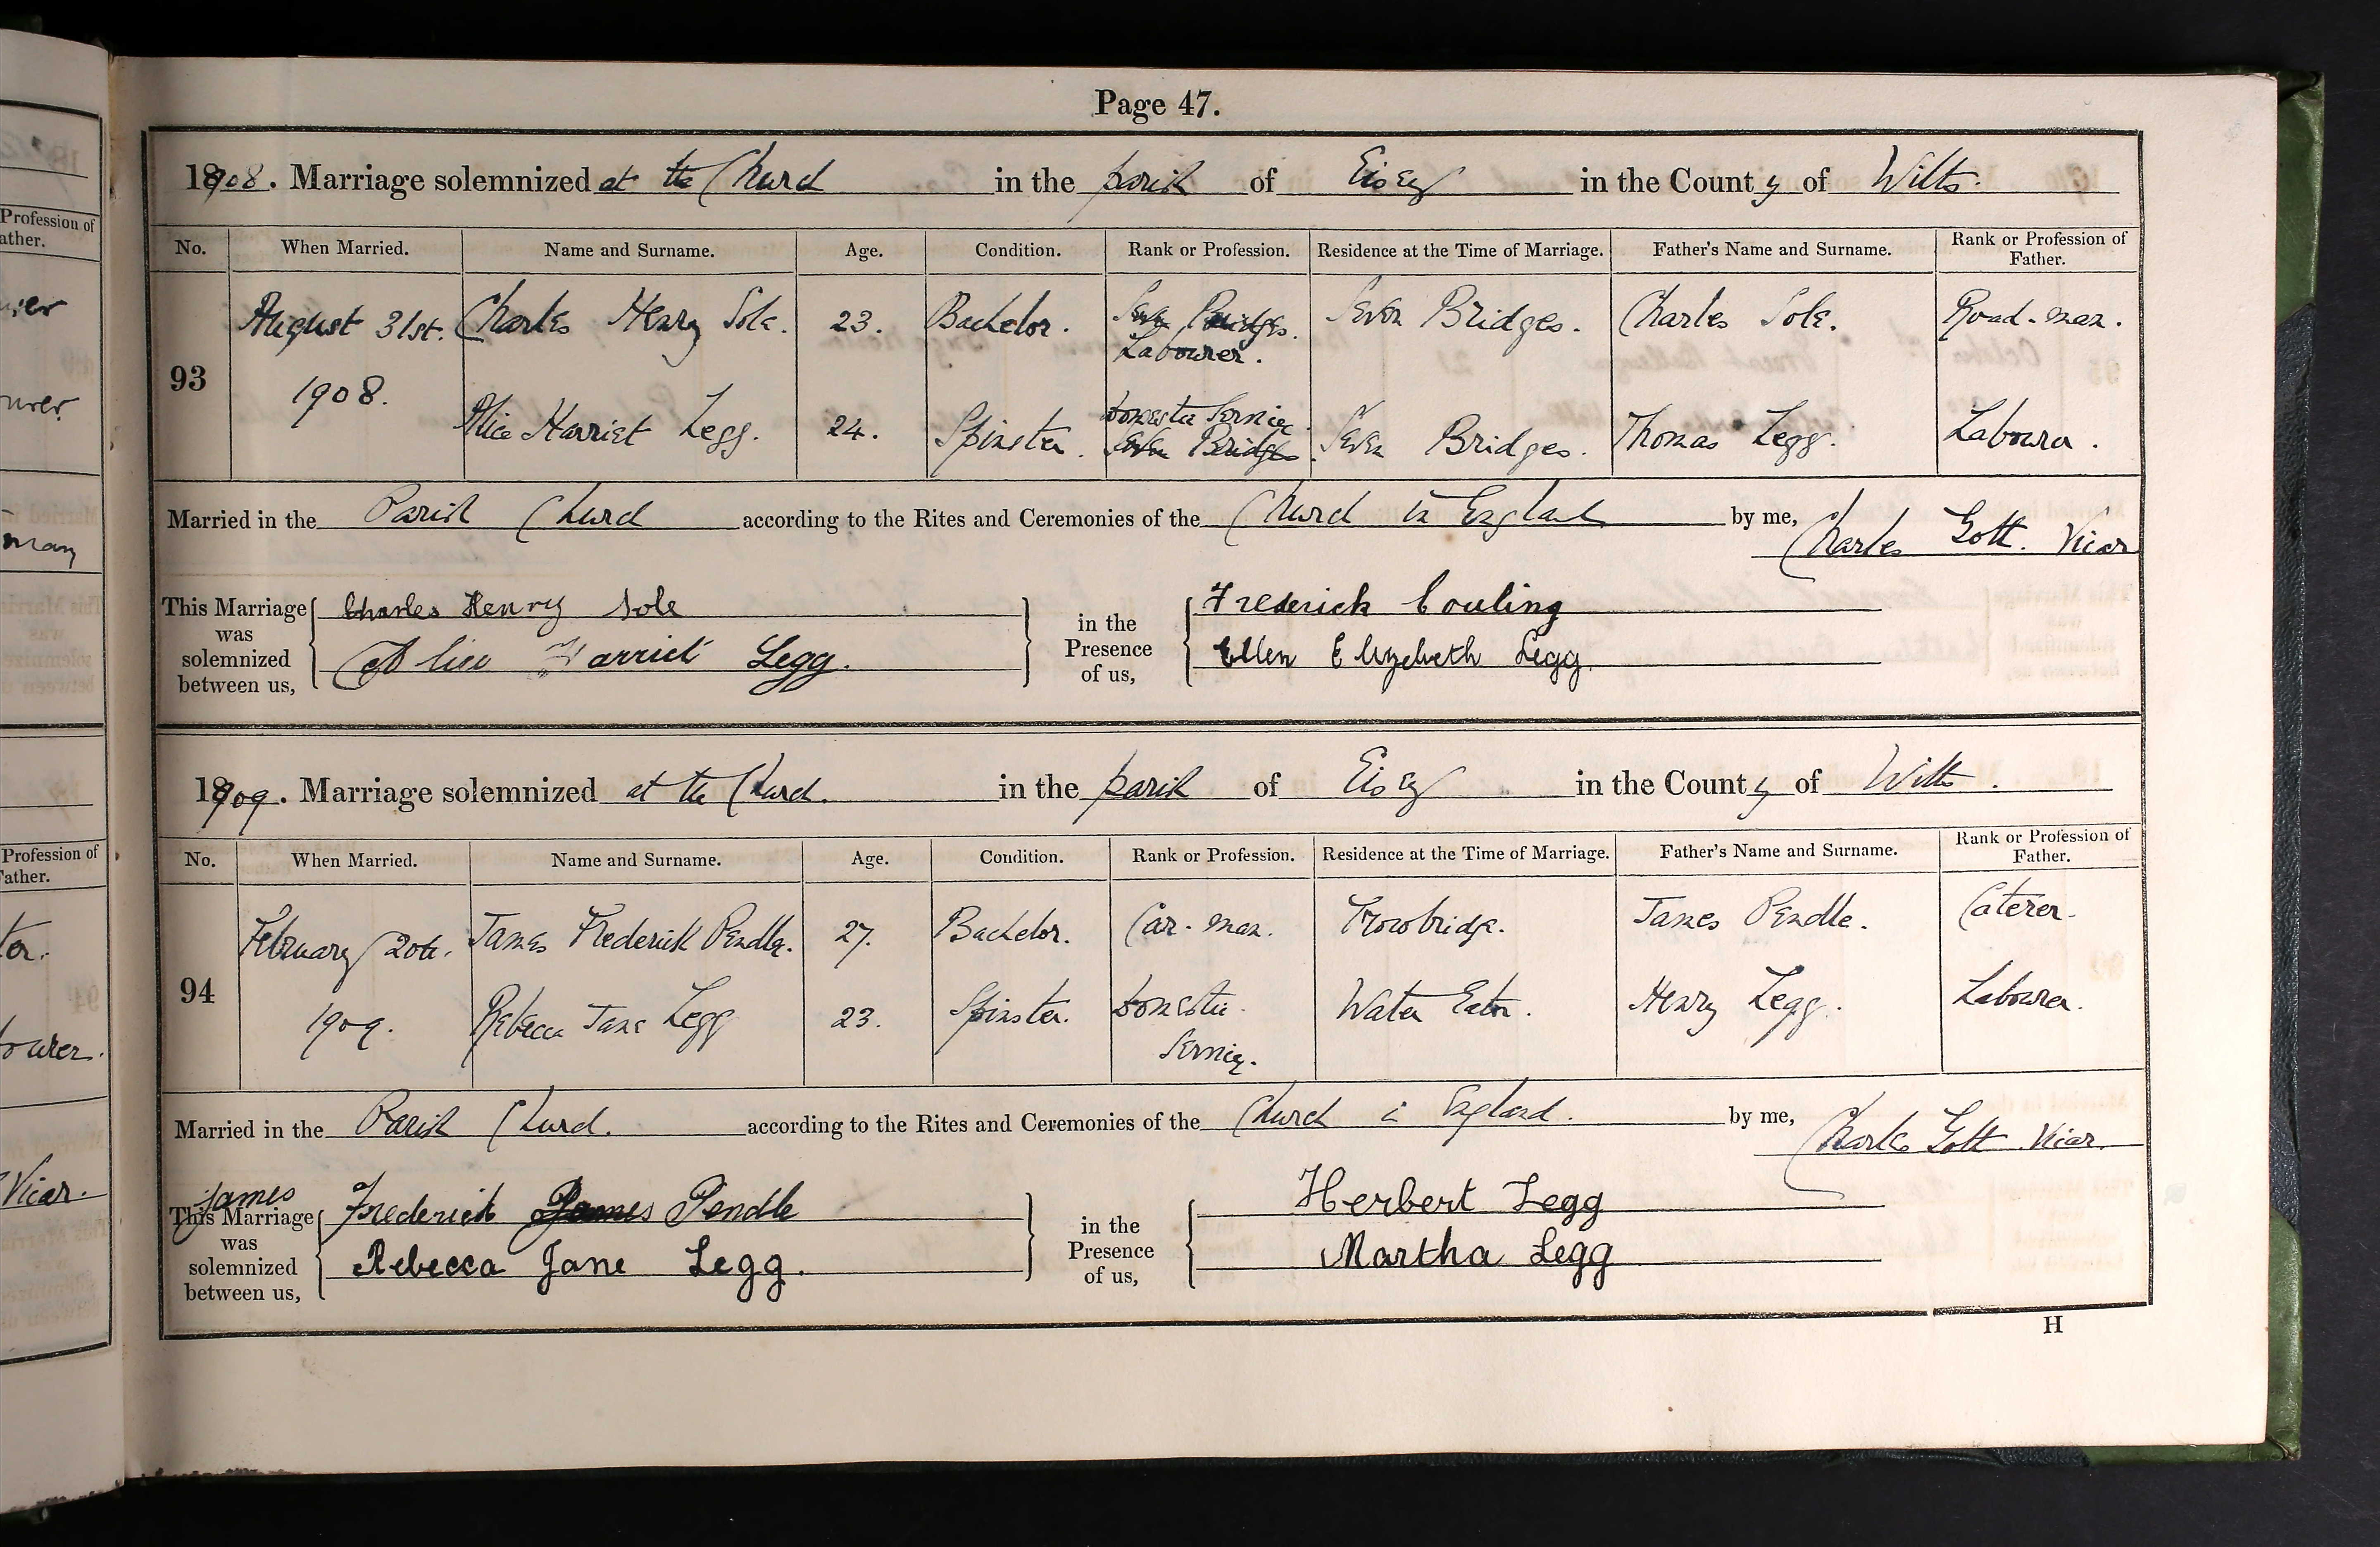 Page 47.
1908. Marriage solemnized at the Church in the parish of Eisey in the County of Wilts.
No. When Married. Name and Surname. Age. Condition. Rank or Profession. Residence at the Time of Marriage. Father's Name and Surname. Rank or Profession of Father.
93 August 31st. 1908. Charles Henry Sole. 23. Bachelor. Seven Bridges. Labourer. Seven Bridges. Charles Sole. Road-man.
Alice Harriet Legg. 24. Spinster. Domestic Service Seven Bridges Seven Bridges. Thomas Legg. Labourer.
Married in the Parish Church according to the Rites and Ceremonies of the Church in England by me, Charles Gott. Vicar
This Marriage was solemnized between us,
Charles Henry Sole
Alice Harriet Legg.
in the Presence of us,
Frederick Couling
Ellen Elizebeth Legg.
1909. Marriage solemnized at the Church. in the parish of Eisey in the County of Wilts.
No. When Married. Name and Surname. Age. Condition. Rank or Profession. Residence at the Time of Marriage. Father's Name and Surname. Rank or Profession of Father.
94 February 20th. 1909. James Frederick Pendle. 27. Bachelor. Car-man. Trowbridge. James Pendle. Caterer.
Rebecca Jane Legg 23. Spinster. Domestic Service. Water Eaton. Henry Legg. Labourer.
Married in the Parish Church. according to the Rites and Ceremonies of the Church in England. by me, Charles Gott Vicar.
This Marriage was solemnized between us,
James Frederick James Pendle
Rebecca Jane Legg.
in the Presence of us,
Herbert Legg
Martha Legg
H